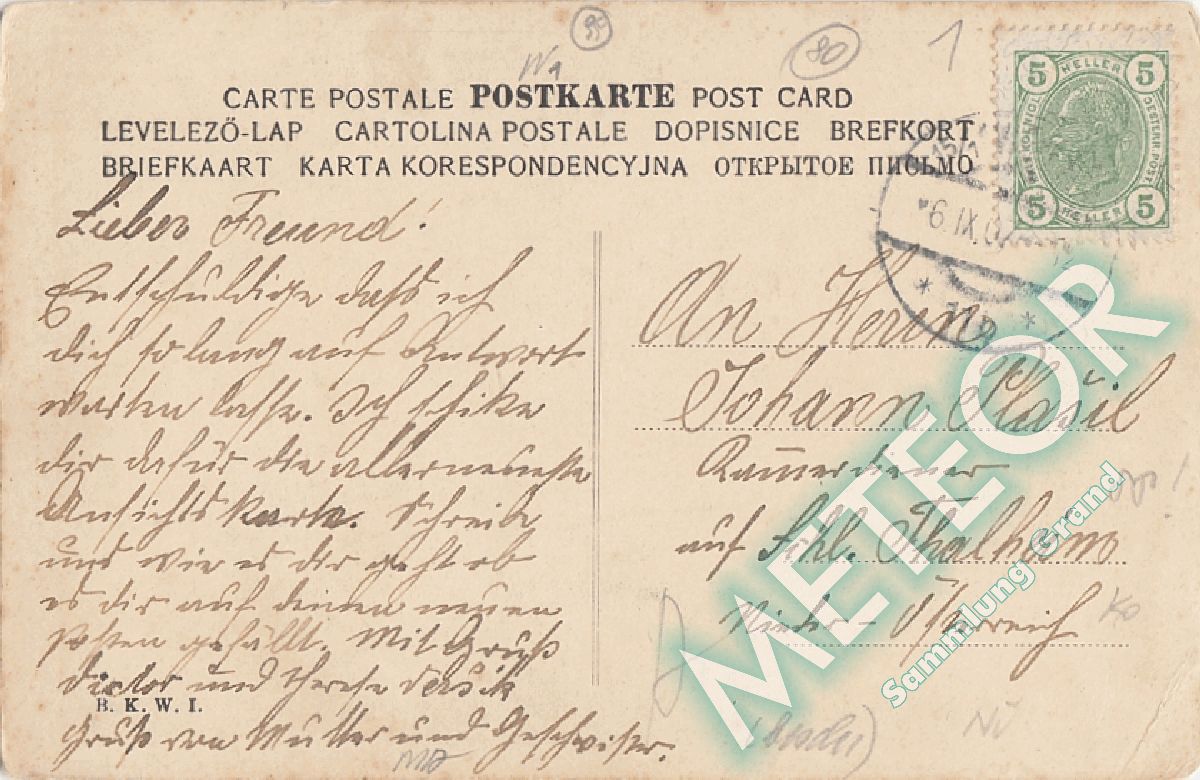 CARTE POSTALE POSTKARTE POST CARD
LEVELEZŐ-LAP CARTOLINA POSTALE DOPISNICE BREFKORT
BRIEFKAART KARTA KORESPONDENCYJNA ОТКРЫТОЕ ПИСЬМО
99
80
1
5 HELLER 5
5 HELLER 5
6.IX.
Lieber Freund!
Entschuldige daß ich
dich so lang auf Antwort
warten lasse. Ich schike
dir dafür die allerneueste
Ansichtskarte. Schreib
uns wie es dir geht ob
es dir auf deinen neuen
Posten gefällt. Mit Gruß
und Therese
Gruß von Mutter und Geschwister.
B. K. W. I.
An Herrn
Johann
Kammerdiener
auf Schl. Thalheim
Nieder-Österreich
METEOR
Sammlung Grand